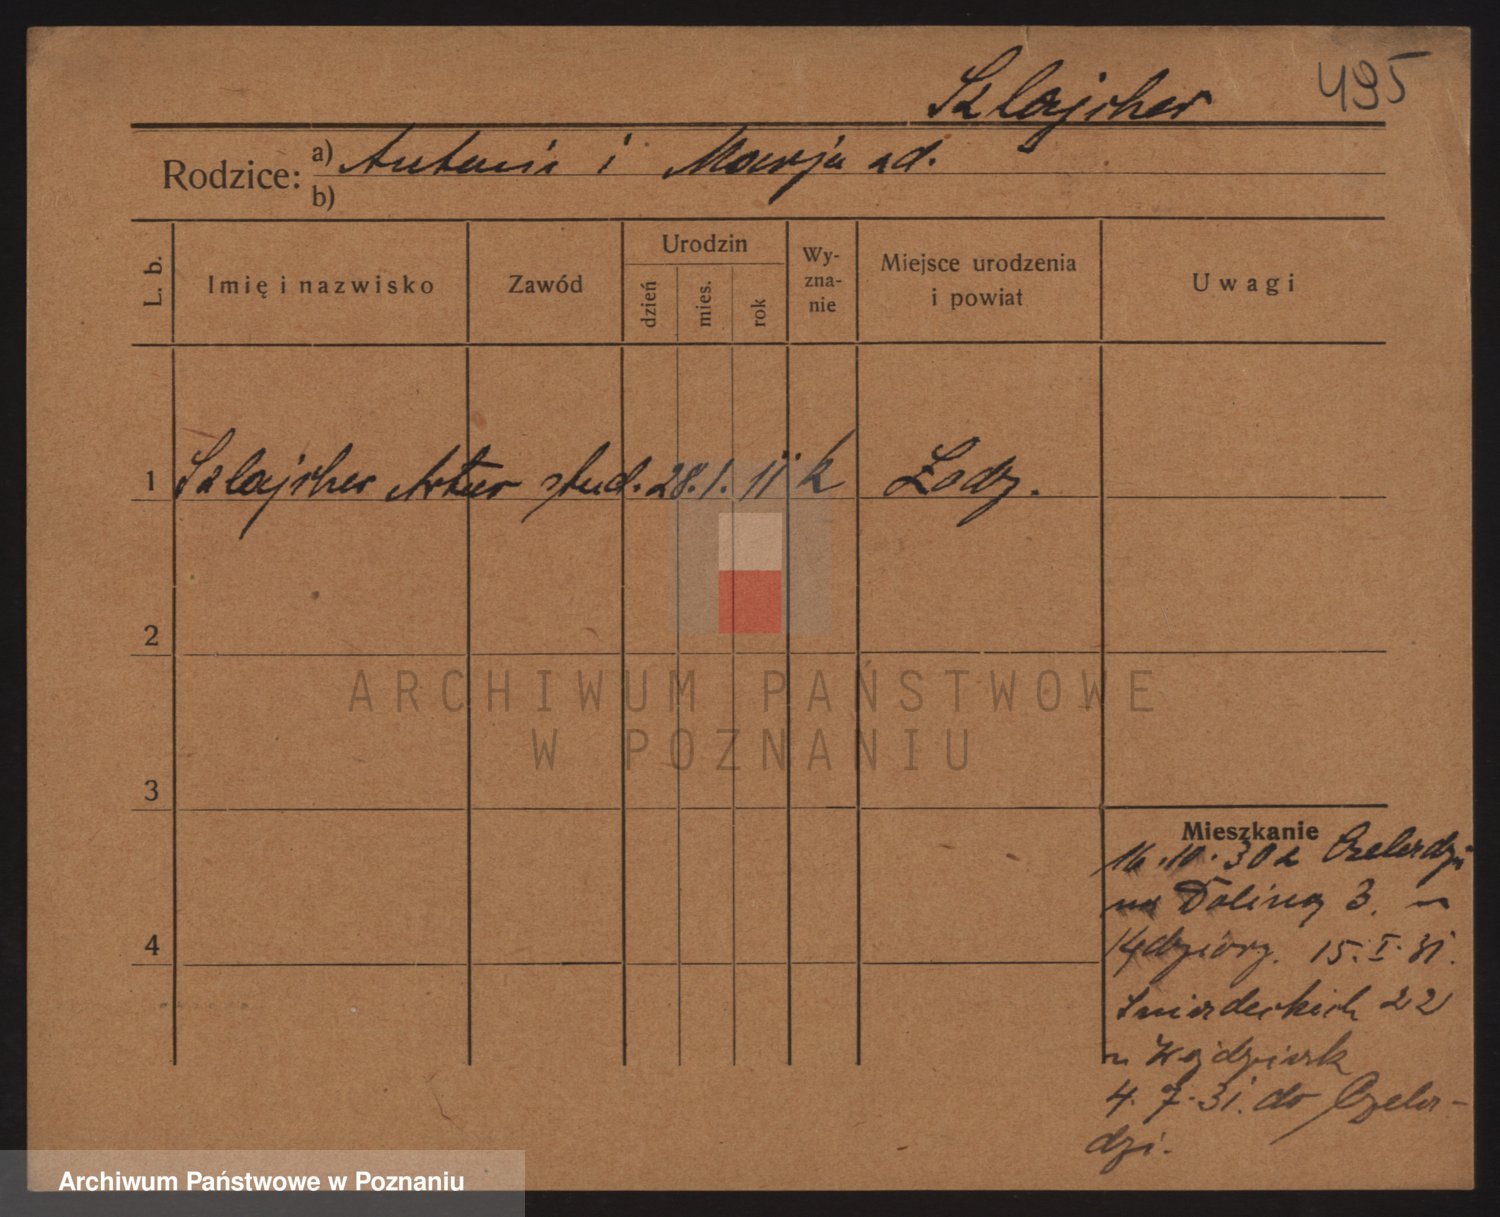 Szlajcher 495
Rodzice: a) Antoni i Marja ad.
b)
L. b. Imię i nazwisko Zawód Urodzin dzień mies. rok Wy-zna-nie Miejsce urodzenia i powiat Uwagi
1 Szlajcher Artur stud. 28. 1. 11 k Łódź.
2
ARCHIWUM PAŃSTWOWE
W POZNANIU
3
Mieszkanie
16.10.30 z Czeladzi
na Dolinę 3. u
4
15.I.31.
Śniadeckich 22
u
4.7.31. do Czela-
dzi.
Archiwum Państwowe w Poznaniu